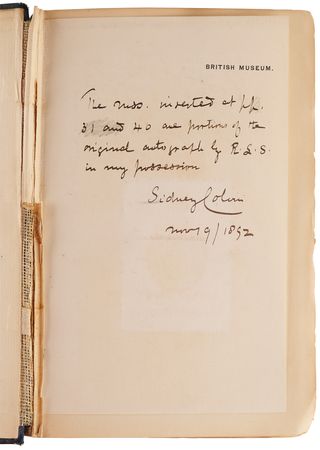 BRITISH MUSEUM.
The mss. inserted at pp.
31 and 40 are portions of the
original autograph by R.L.S.
in my possession
Sidney Colvin
Nov 9/1892